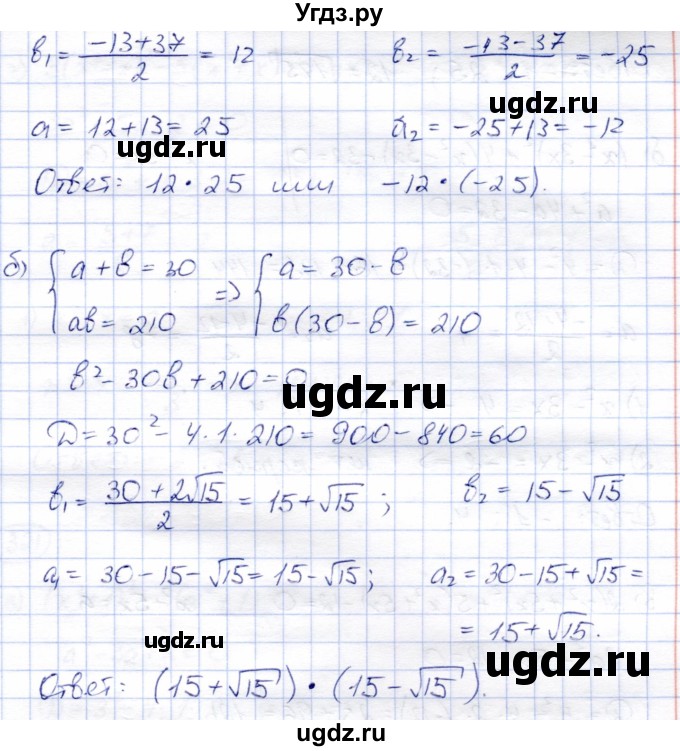 Угдз.ру
b₁ = (-13+37)/2 = 12    b₂ = (-13-37)/2 = -25
ugdz.ru
a = 12+13 = 25    a₂ = -25+13 = -12
ugdz.ru ugdz.ru
Ответ: 12 · 25 или -12 · (-25).
б) { a + b = 30    => { a = 30 - b
ab = 210    b(30 - b) = 210
b² - 30b + 210 = 0
ugdz.ru
D = 30² - 4 · 1 · 210 = 900 - 840 = 60
b₁ = (30 + 2√15)/2 = 15 + √15 ;    b₂ = 15 - √15
ugdz.ru ugdz.ru
a₁ = 30 - 15 - √15 = 15 - √15 ;    a₂ = 30 - 15 + √15 =
= 15 + √15.
ugdz.ru ugdz.ru
Ответ: (15 + √15) · (15 - √15).
ugdz.ru